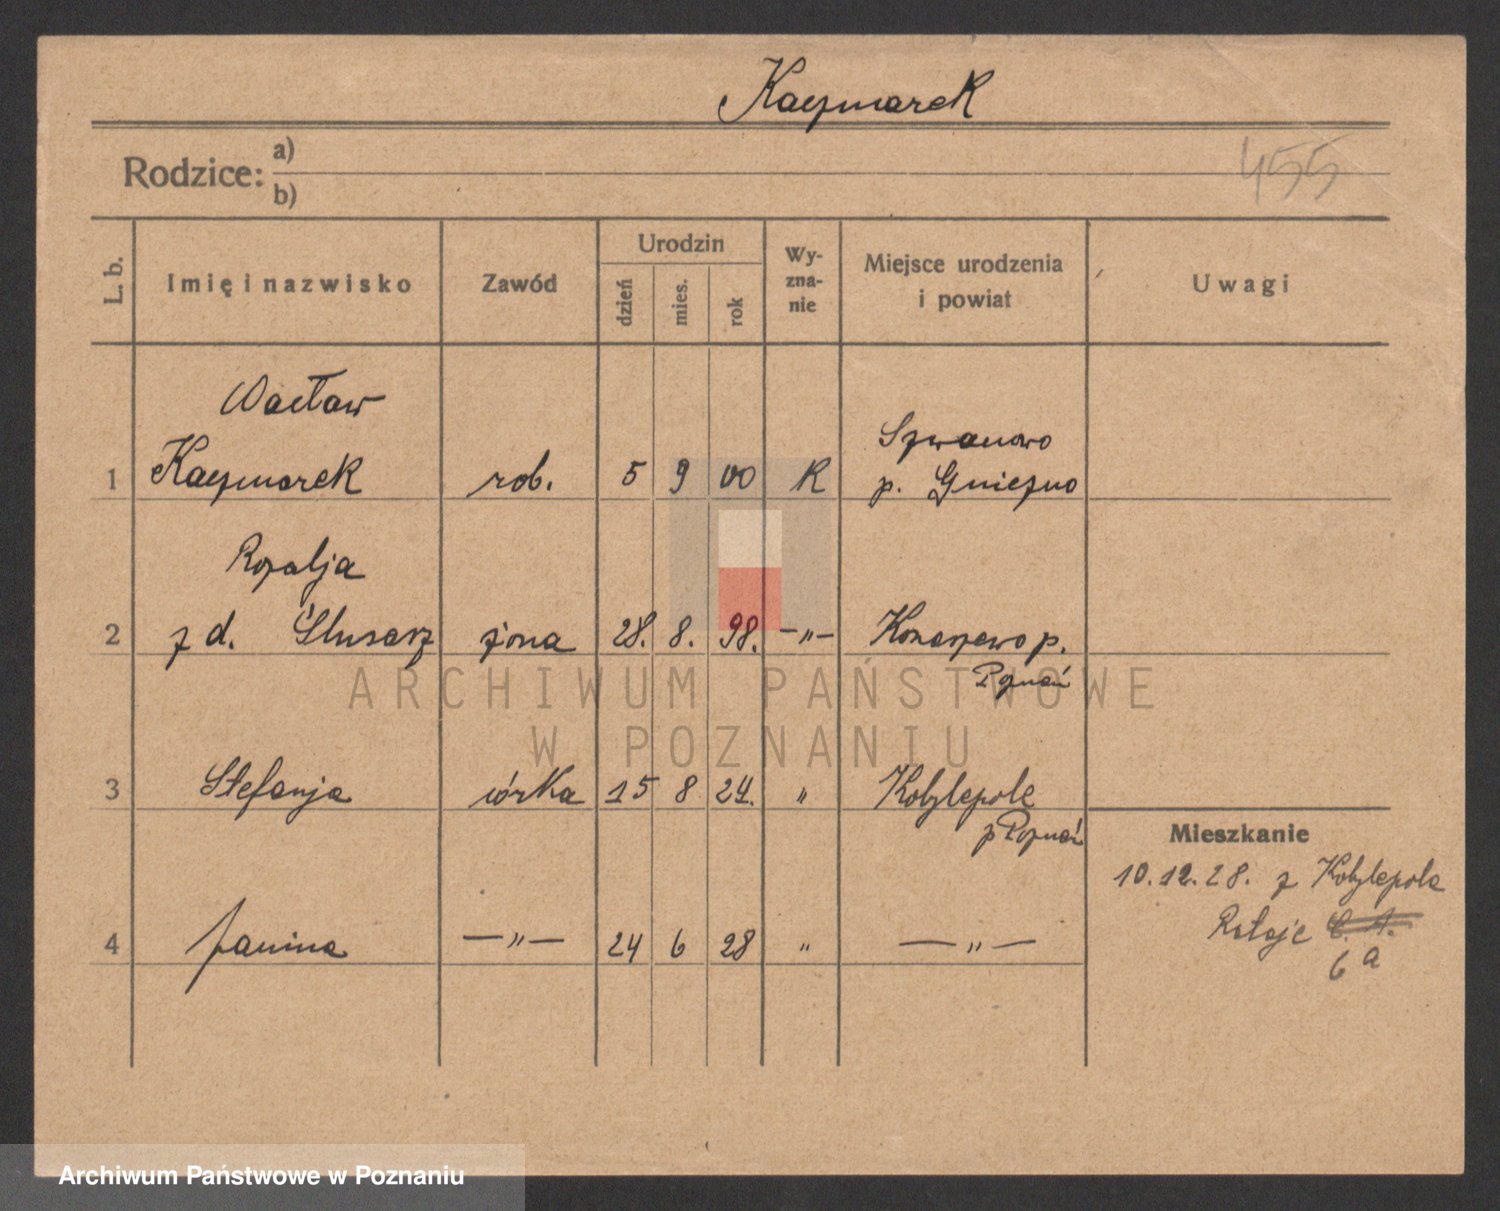 Kaczmarek
Rodzice: a)
b)
455
L. b.
Imię i nazwisko
Zawód
Urodzin
dzień
mies.
rok
Wy-
zna-
nie
Miejsce urodzenia
i powiat
Uwagi
Wacław
1 Kaczmarek rob. 5 9 00 R
Szwanowo
p. Gniezno
Rozalja
2 z d. Ślusarz żona 28. 8. 98. —"— Konarzewo p.
Poznań
3 Stefanja córka 15 8 24. " Kobylepole
p Poznań
4 Janina —"— 24 6 28 " —"—
Mieszkanie
10.12.28. z Kobylepole
Rataje
6 a
ARCHIWUM PAŃSTWOWE
W POZNANIU
Archiwum Państwowe w Poznaniu